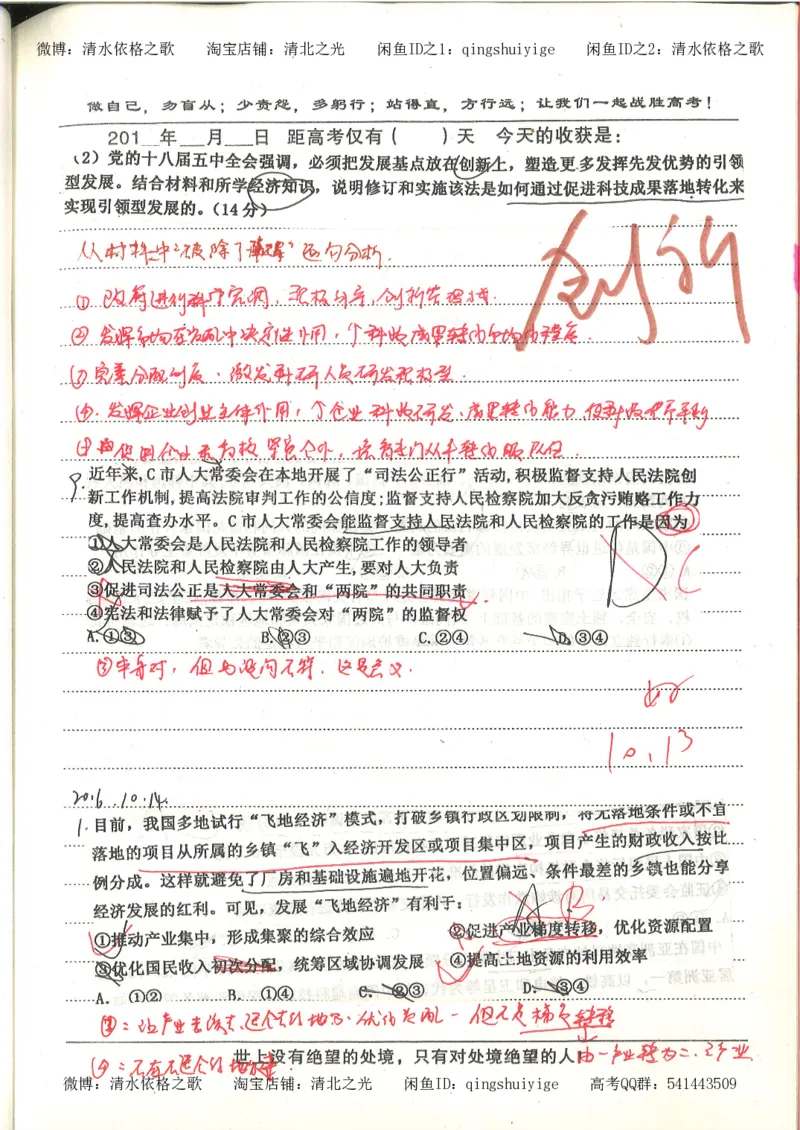 微博：清水依格之歌 淘宝店铺：清北之光 闲鱼ID之1：qingshuiyige 闲鱼ID之2：清水依格之歌
做自己，勿盲从；少责怨，多躬行；站得直，方行远；让我们一起战胜高考！
201__年___月___日 距高考仅有（ ）天 今天的收获是：
（2）党的十八届五中全会强调，必须把发展基点放在创新上，塑造更多发挥先发优势的引领
型发展。结合材料和所学经济知识，说明修订和实施该法是如何通过促进科技成果落地转化来
实现引领型发展的。（14分）
创新
从材料中"破除了 "逐句分析.
① 政府进行科学宏调，积极引导，创新管理方式.
② 发挥市场在资配中决定性作用，个科技成果转化的市场化程度.
③ 完善分配制度，激发科研人员研发积极性
④ 发挥企业创业主体作用，个企业科技研发、成果转化能力
9. 近年来，C市人大常委会在本地开展了“司法公正行”活动，积极监督支持人民法院创
新工作机制，提高法院审判工作的公信度；监督支持人民检察院加大反贪污贿赂工作力
度，提高查办水平。C市人大常委会能监督支持人民法院和人民检察院的工作是因为
①人大常委会是人民法院和人民检察院工作的领导者
②人民法院和人民检察院由人大产生，要对人大负责
③促进司法公正是人大常委会和“两院”的共同职责
④宪法和法律赋予了人大常委会对“两院”的监督权
A. ①③ B. ②③ C. ②④ D. ③④
③本身对，但与设问不符，这是意义.
好
10.13
2016.10.14.
1. 目前，我国多地试行“飞地经济”模式，打破乡镇行政区划限制，将无落地条件或不宜
落地的项目从所属的乡镇“飞”入经济开发区或项目集中区，项目产生的财政收入按比
例分成。这样就避免了厂房和基础设施遍地开花，位置偏远、条件最差的乡镇也能分享
经济发展的红利。可见，发展“飞地经济”有利于：
①推动产业集中，形成集聚的综合效应 ②促进产业梯度转移，优化资源配置
③优化国民收入初次分配，统筹区域协调发展 ④提高土地资源的利用效率
A. ①② B. ①④ C. ②③ D. ③④
②：让产业去该去适合的地方，优化资配一但不是梯度转移
世上没有绝望的处境，只有对处境绝望的人
微博：清水依格之歌 淘宝店铺：清北之光 闲鱼ID：qingshuiyige 高考QQ群：541443509